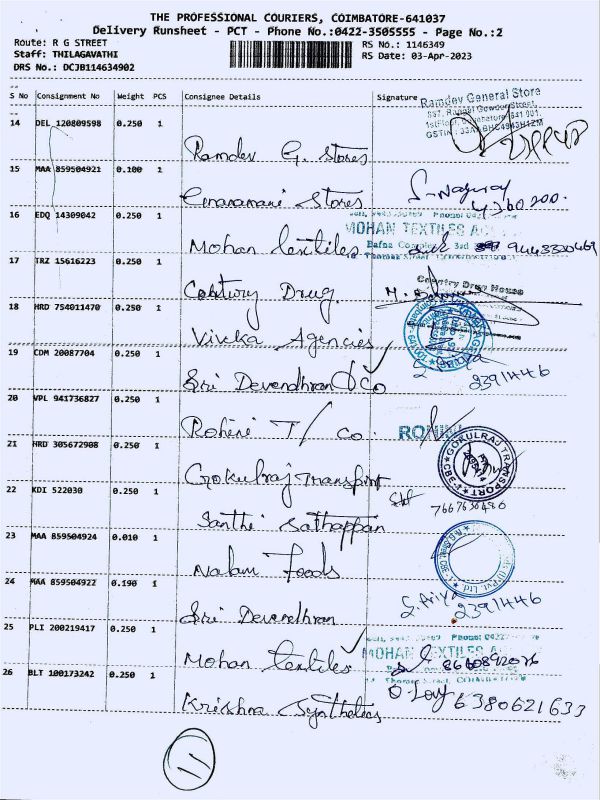 THE PROFESSIONAL COURIERS, COIMBATORE-641037
Delivery Runsheet - PCT - Phone No.:0422-3505555 - Page No.:2
Route: R G STREET
RS No.: 1146349
Staff: THILAGAVATHI
RS Date: 03-Apr-2023
DRS No.: DCJB114634902
S No Consignment No Weight PCS Consignee Details Signature
Ramdev General Store
14 DEL 120809598 0.250 1
Ramdev G. Stores
15 MAA 859504921 0.100 1
Stores
16 EDQ 14309042 0.250 1
MOHAN TEXTILES
Mohan textiles
17 TRZ 15616223 0.250 1
Country Drug House
Drug.
18 HRD 754011470 0.250 1
Viveka Agencies
19 CDM 20087704 0.250 1
Sri Devendhran & Co
2391446
20 VPL 941736827 0.250 1
Rohini T/ Co.
ROHINI
21 HRD 305672908 0.250 1
GOKULRAJ TRANSPORT
Gokulraj Transport
22 KDI 522030 0.250 1
Santhi Sathappan
23 MAA 859504924 0.010 1
Nalam Foods
24 MAA 859504922 0.190 1
S. Priya
2391446
Sri Devendhran
25 PLI 200219417 0.250 1
MOHAN TEXTILES
Mohan textiles
26 BLT 100173242 0.250 1
6380621633
Krishna Synthetics
11